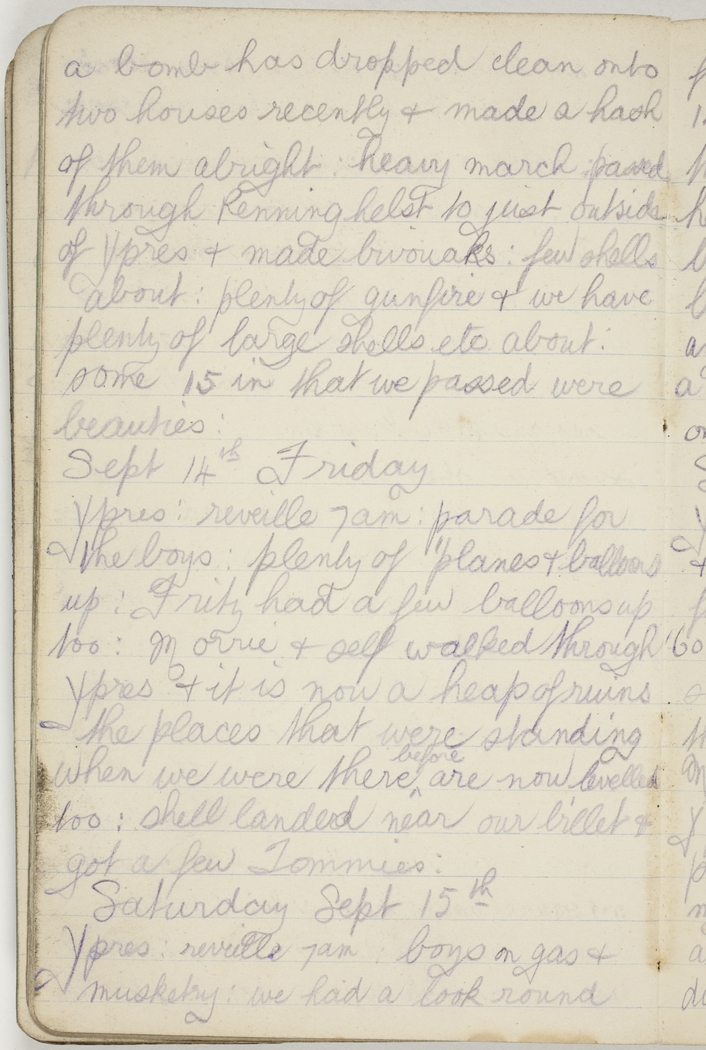 a bomb has dropped clean onto
two houses recently & made a hash
of them alright : heavy march : passed
through Renninghelst to just outside
of Ypres & made bivouaks : few shells
about : plenty of gunfire & we have
plenty of large shells etc about :
some 15 in that we passed were
beauties :
Sept 14th Friday
Ypres : reveille 7am : parade for
the boys : plenty of 'planes & balloons
up : Fritz had a few balloons up
too : Morrie & self walked through
Ypres & it is now a heap of ruins
the places that were standing
when we were there before are now levelled
too : shell landed near our billet &
got a few Tommies :
Saturday Sept 15th
Ypres : reveille 7am : boys on gas &
musketry : we had a look round